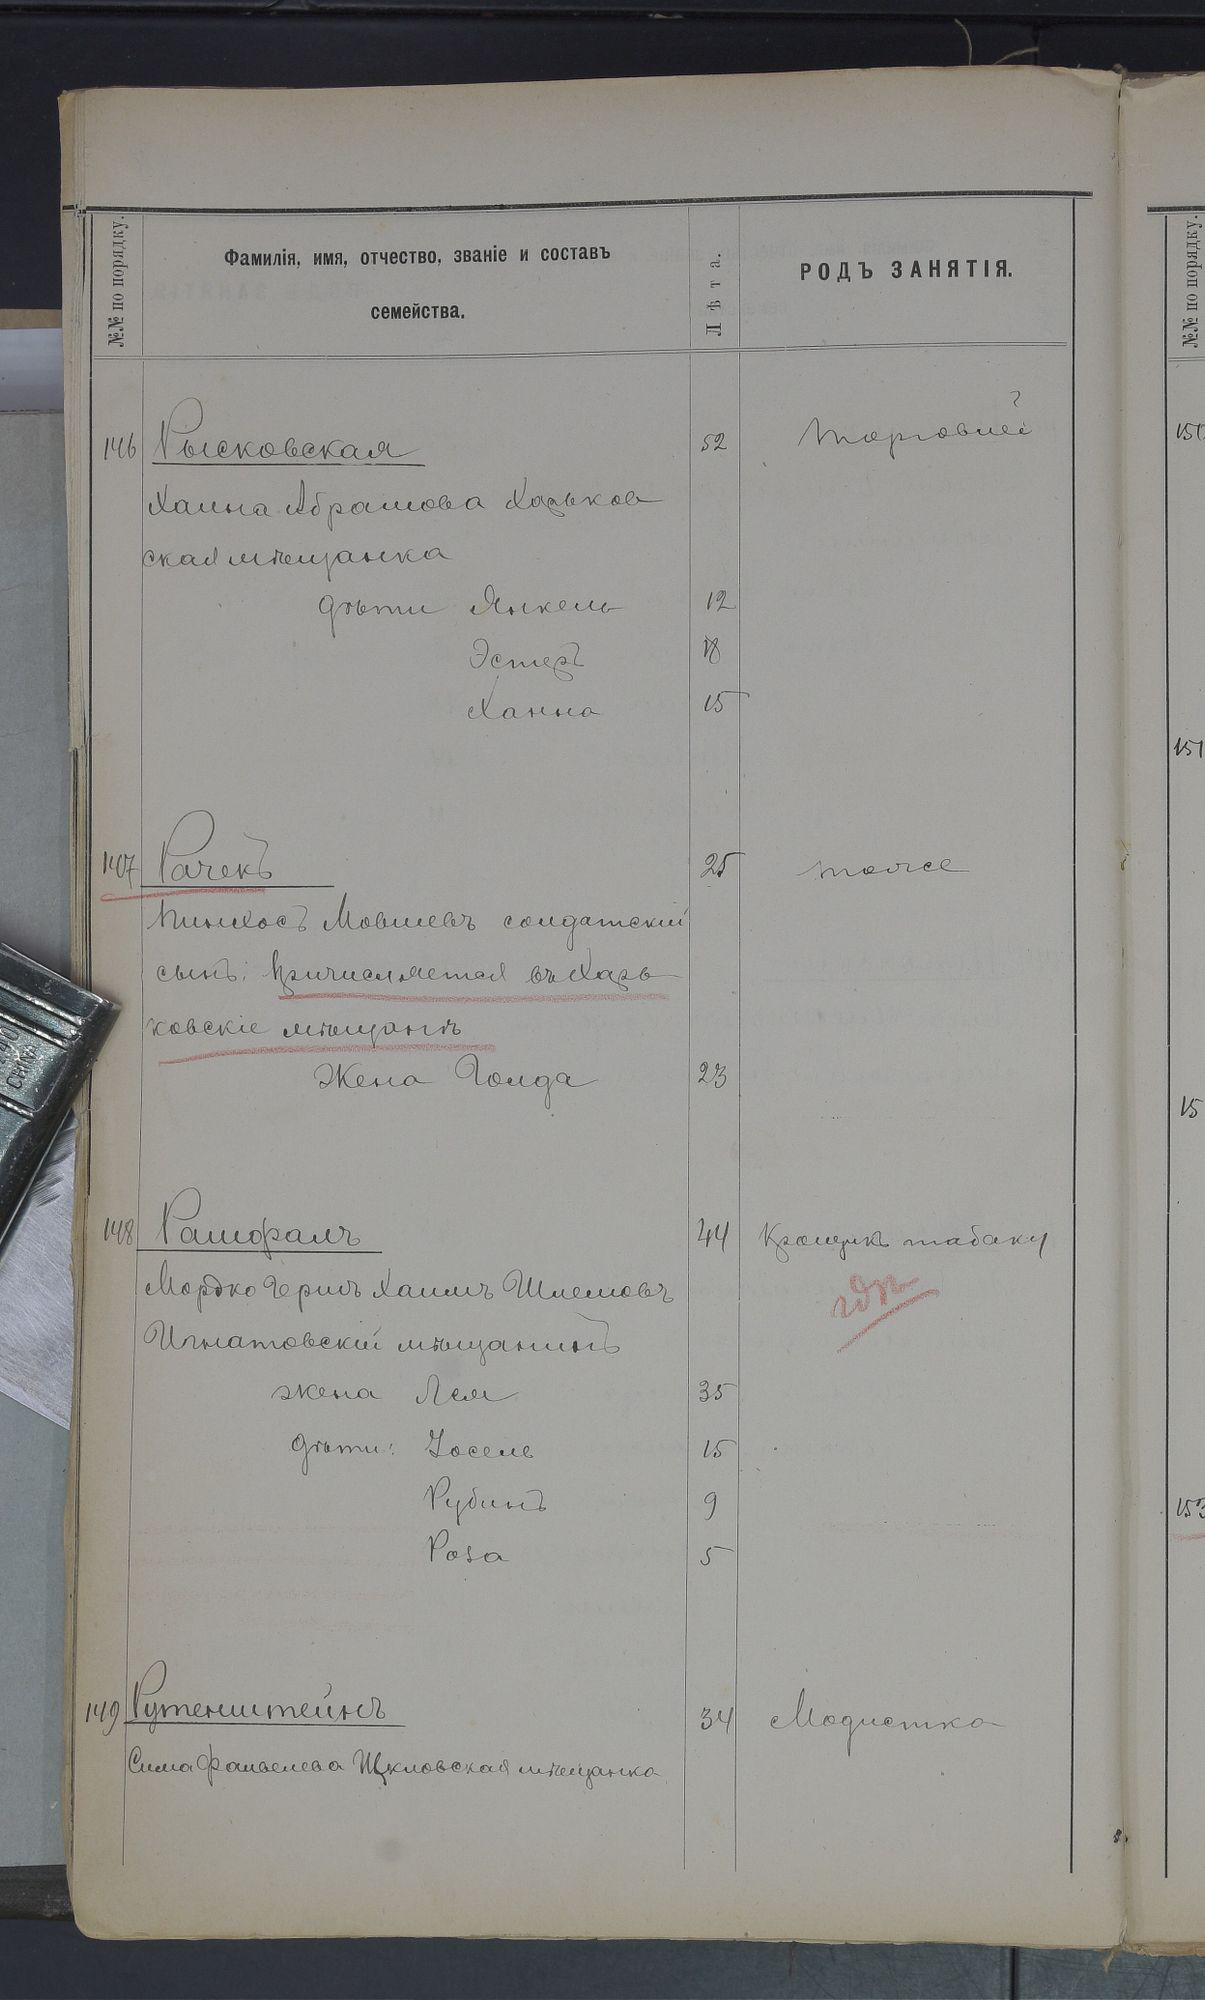 №№ по порядку.
Фамилія, имя, отчество, званіе и составъ
семейства.
Лѣта.
РОДЪ ЗАНЯТІЯ.
№№ по порядку.
146 Рысковская 52 торговлей
Хаина Абрамова Харьков
ская мѣщанка
дѣти Янкель 12
Эстеръ 18
Ханна 15
147 Рачекъ 25 тоже
Пинхосъ Мовшевъ солдатскій
сынъ. Причисляется въ Харь
ковскіе мѣщанѣ
Жена Голда 23
148 Рашфалъ 44 Крошикъ табаку
Мордко Гершъ Хаимъ Шлемовъ
Игнатовскій мѣщанинъ
жена Лея 35
дѣти: Іосель 15
Рубинъ 9
Роза 5
149 Рутенштейнъ 34 Модистка
Сима Файвелева Шкловская мѣщанка
151
15
153